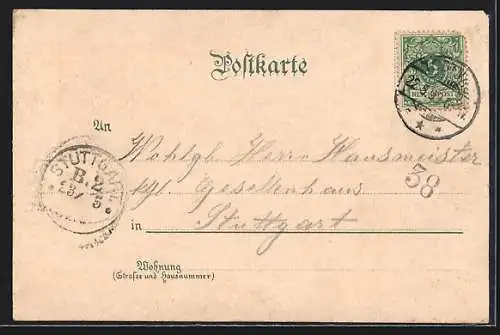 Postkarte
5
REICHSPOST
An
Wohlgb. Herrn Hausmeister
kgl. Gesellenhaus
Stuttgart
in
STUTTGART
B.2
23/5
38
Wohnung
(Straße und Hausnummer)